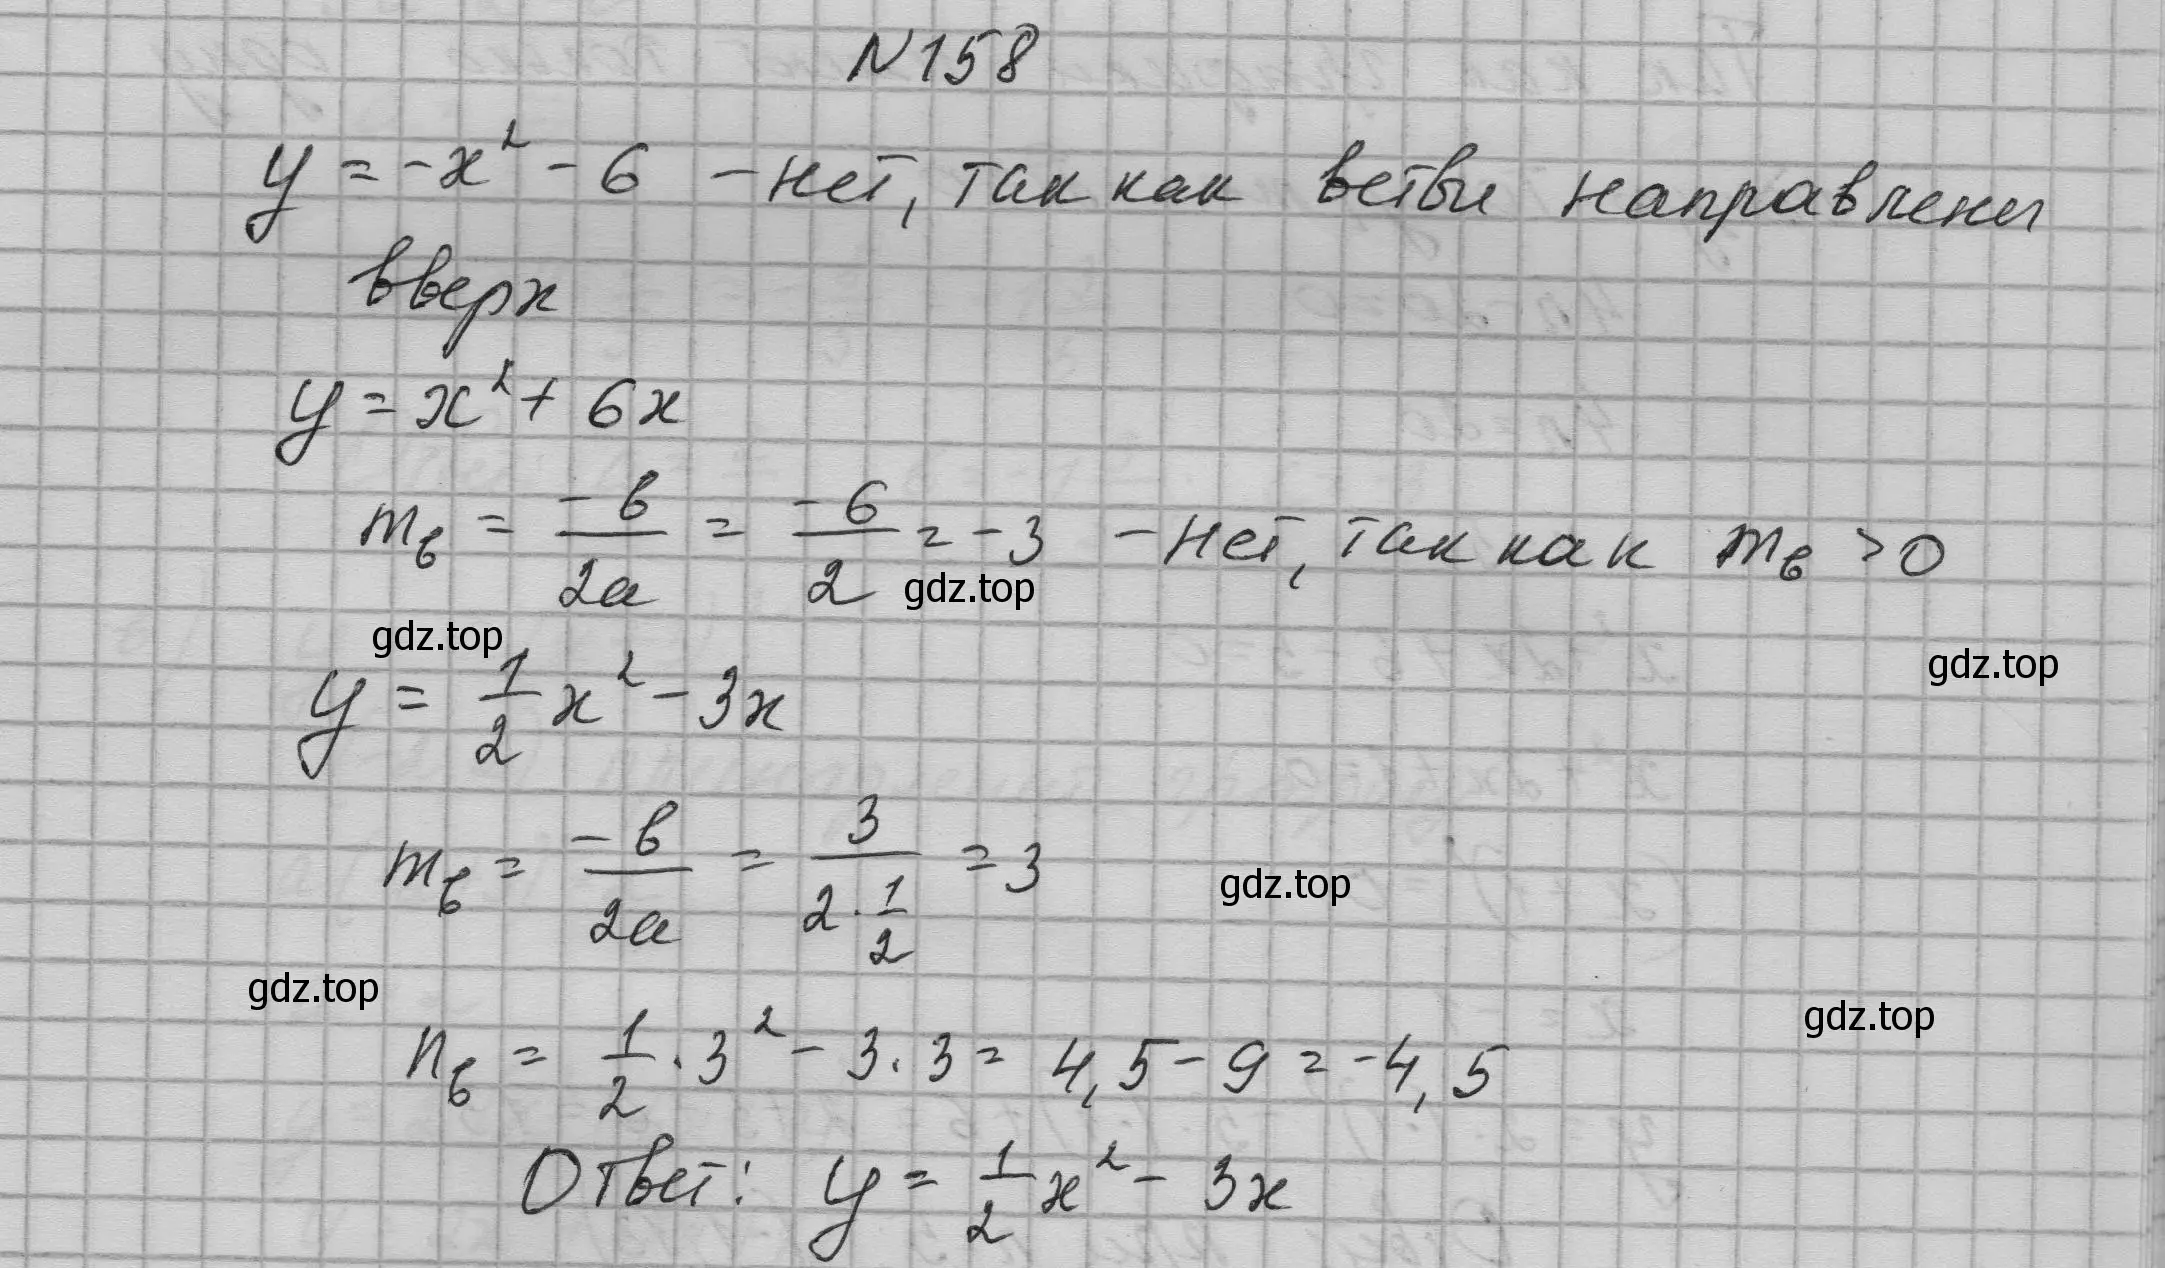 N158
y = -x² - 6 - нет, так как ветви направлены
вверх
y = x² + 6x
m_в = -b/2a = -6/2 = -3 - нет, так как m_в > 0
gdz.top
gdz.top
gdz.top
y = 1/2 x² - 3x
m_в = -b/2a = 3/(2·1/2) = 3
gdz.top
gdz.top
gdz.top
n_в = 1/2 · 3² - 3·3 = 4,5 - 9 = -4,5
Ответ: y = 1/2 x² - 3x